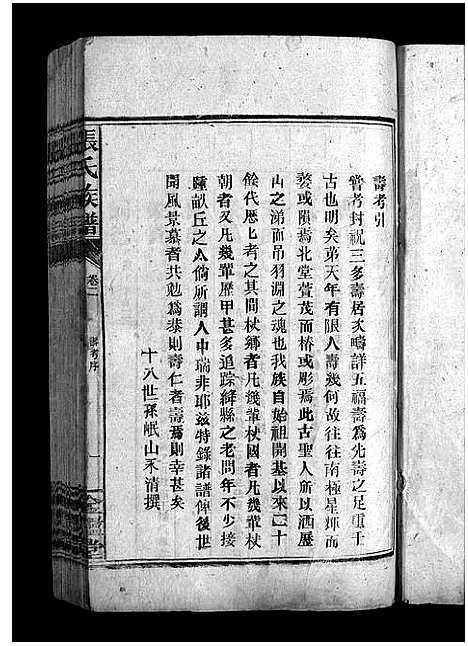 壽考引
嘗考封祝三多壽居次疇詳五福壽爲先壽之足重于
古也明矣第天年有限人壽幾何故往往南極星輝而
婺或隕焉北堂萱茂而椿或彫焉此古聖人所以洒歷
山之涕而吊羽淵之魂也我族自始祖開基以來二十
餘代歷上考之其間杖鄉者凡幾輩杖國者凡幾輩杖
朝者又凡幾輩歷甲甚多追踪絳縣之老問年不少接
踵畝丘之人倘所謂人中瑞非耶兹特錄諸譜俾後世
聞風景慕者共勉爲裴則壽仁者壽焉則幸甚矣
十八世孫岷山永清撰
張氏族譜
卷二
壽考序
一